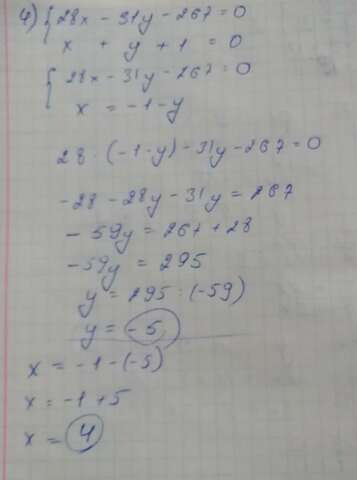 4) { 28x - 31y - 267 = 0
x + y + 1 = 0
{ 28x - 31y - 267 = 0
x = -1 - y
28 · (-1 - y) - 31y - 267 = 0
-28 - 28y - 31y = 267
- 59y = 267 + 28
-59y = 295
y = 295 : (-59)
y = -5
x = -1 - (-5)
x = -1 + 5
x = 4